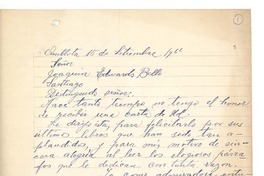 Quillota 15 de Setiembre, 19
Señor
Joaquin Edwards Bello
Santiago
Distinguido señor:
Hace tanto tiempo no tengo el honor
de recibir una carta de Ud.
Le dirijo esta, felicitarlo por sus
último libro que han sido tan a-
plaudidos, y para mi, motivo de since-
ra alegria al leer los elogiosos párra-
fos que le dedican, con tanta razon.
Yo como admiradora